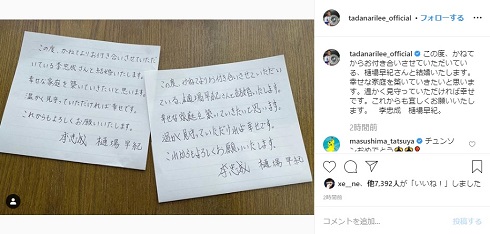 この度、かねてよりお付き合いさせていただ
いている李忠成さんと結婚いたします。
幸せな家庭を築いていきたいと思います。
温かく見守っていただければ幸せです。
これからもよろしくお願いいたします。
李忠成 樋場早紀
この度、かねてよりお付き合いさせていただい
ている、樋場早紀さんと結婚いたします。
幸せな家庭を築いていきたいと思います。
温かく見守っていただければ幸せです。
これからもよろしくお願いいたします。
李忠成 樋場早紀
tadanarilee_official • フォローする
tadanarilee_official この度、かね
てからお付き合いさせていただいてい
る、樋場早紀さんと結婚いたします。
幸せな家庭を築いていきたいと思いま
す。温かく見守っていただければ幸
せです。これからも宜しくお願いいた
します。 李忠成 樋場早紀。
2時間前
masushima_tatsuya チュンソ
ンおめでとう
xe__ne、他7,392人が「いいね！」しました
2時間前
コメントを追加... 投稿する